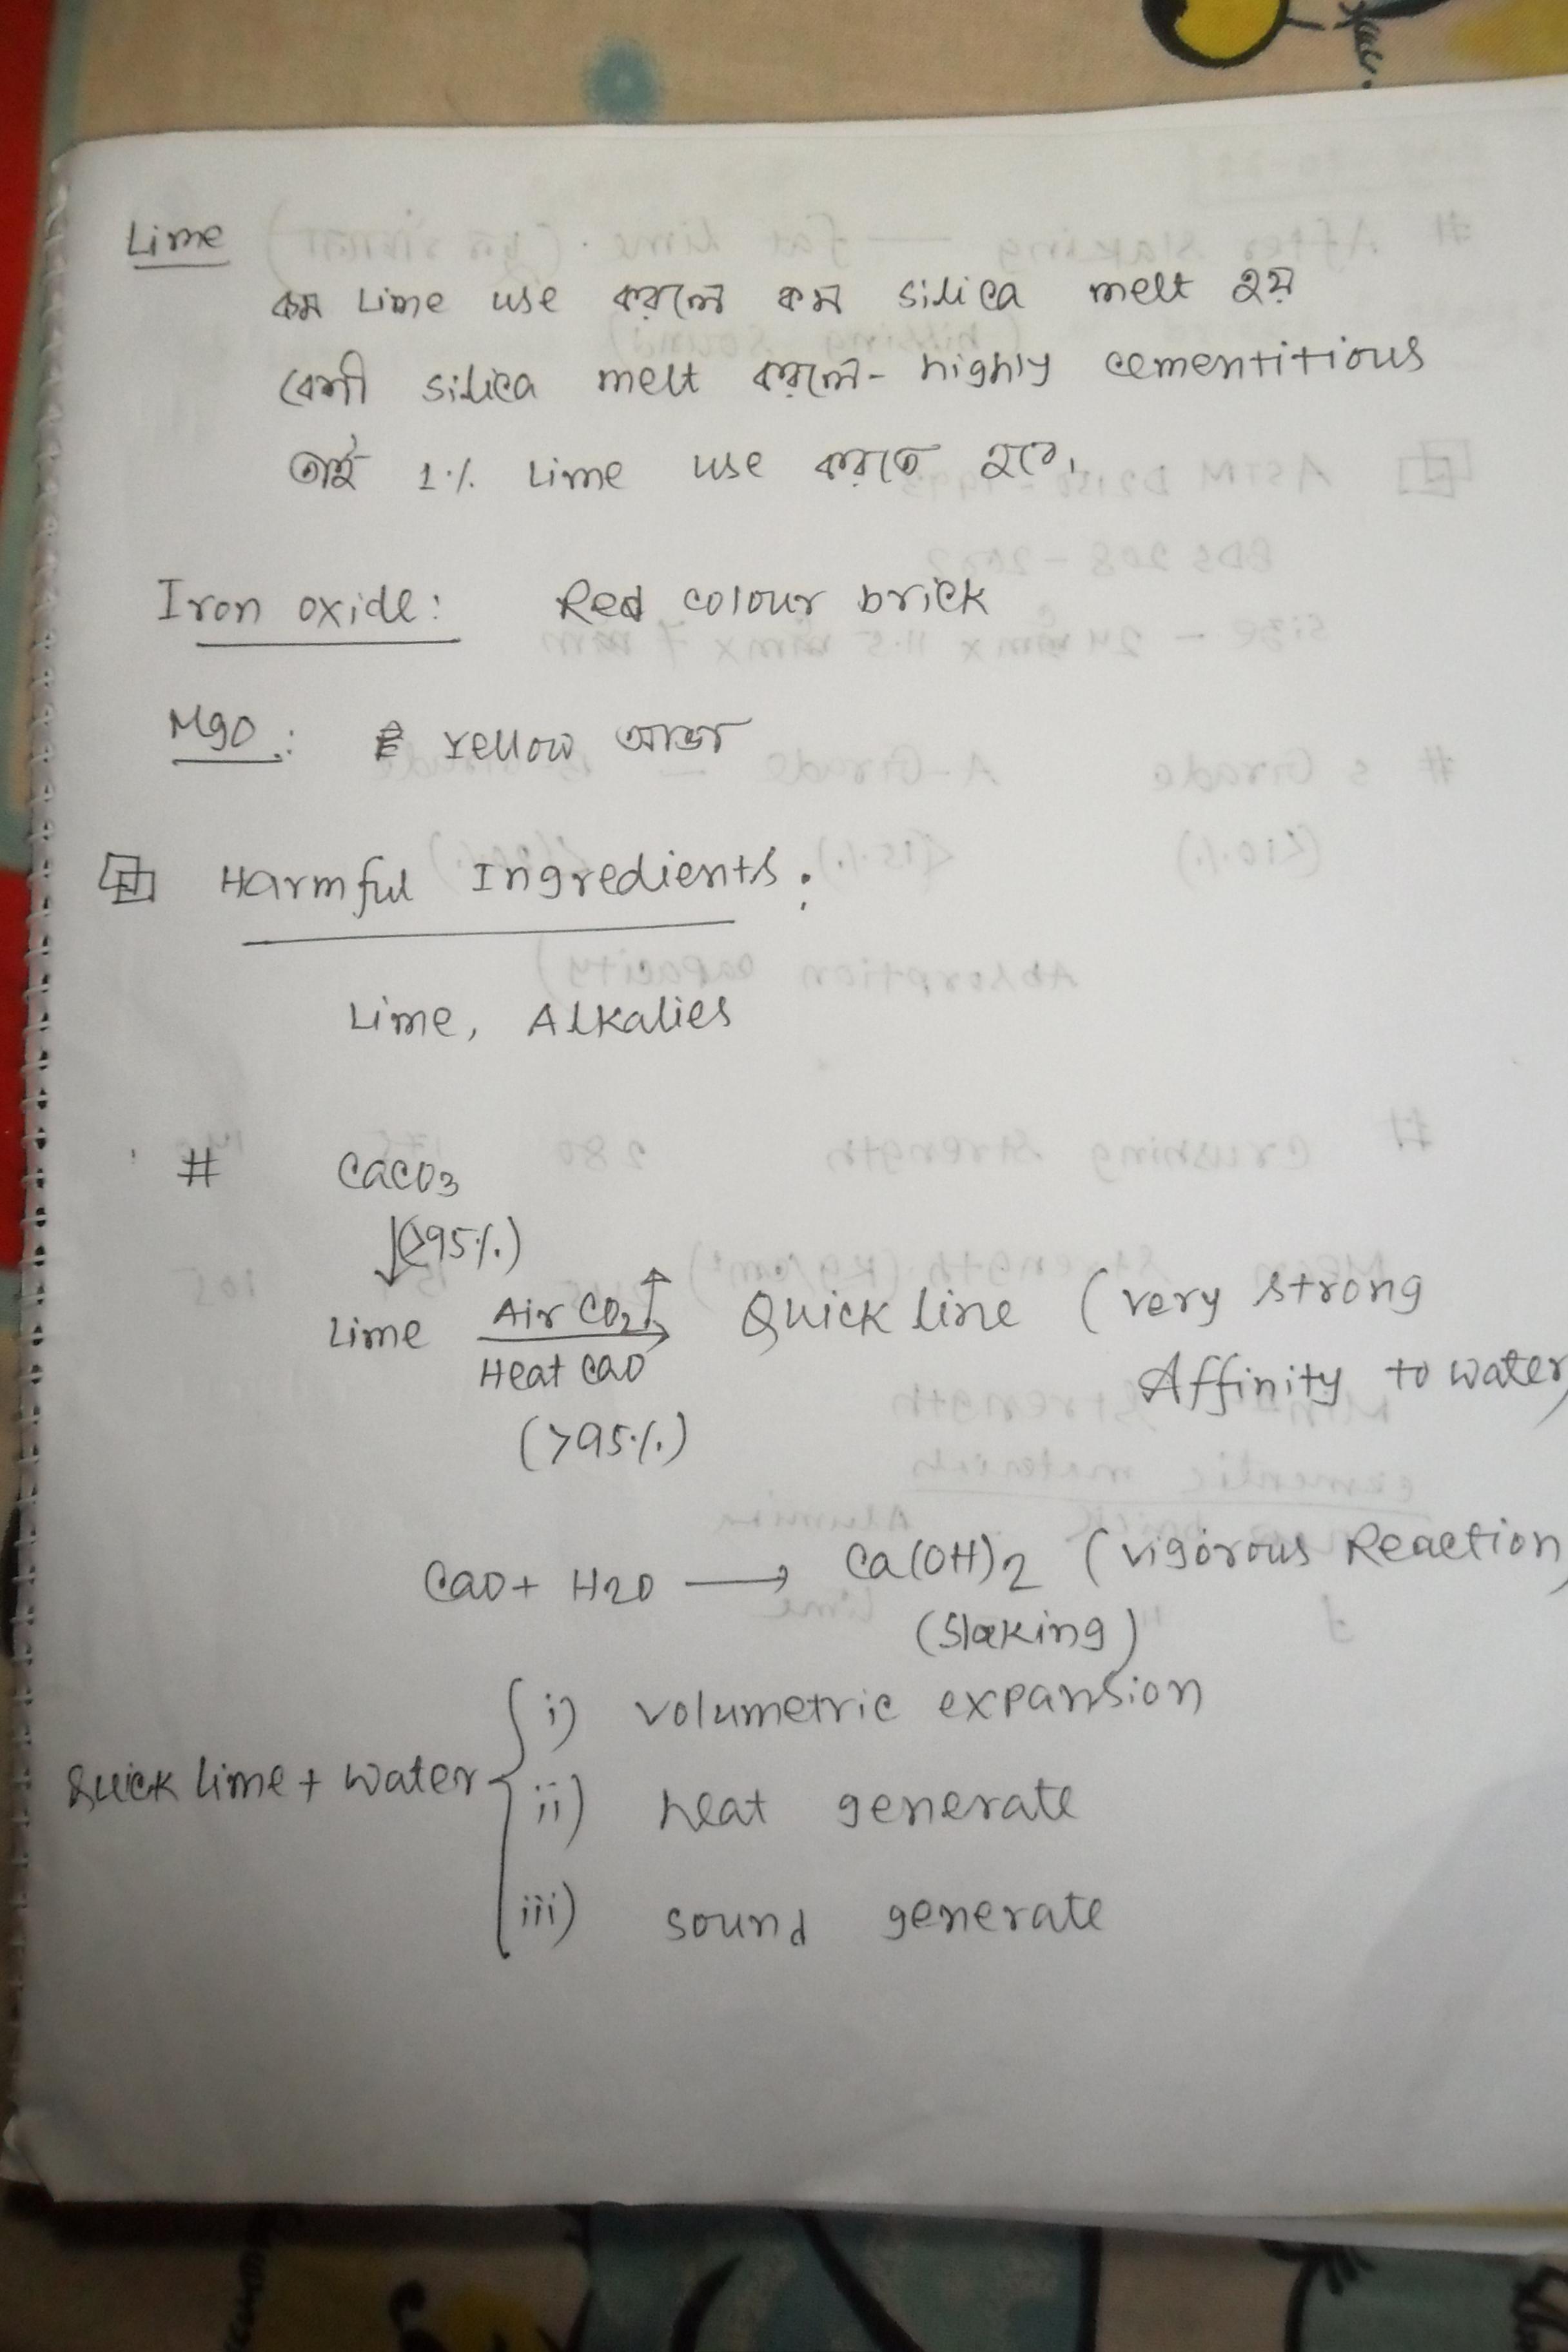 Lime
কম Lime use করলে কম silica melt হয়
বেশী silica melt করলে- highly cementitious
তাই 1% Lime use করতে হবে,
Iron oxide: Red colour brick
MgO: Yellow আভা
Harmful Ingredients:
Lime, Alkalies
# CaCO3
↓(>95%)
Lime Air CO2↑ → Quick line (very strong
Heat CaO Affinity to water)
(>95%)
CaO + H2O → Ca(OH)2 (vigorous Reaction)
(Slaking)
i) volumetric expansion
Quick lime + water
ii) heat generate
iii) sound generate